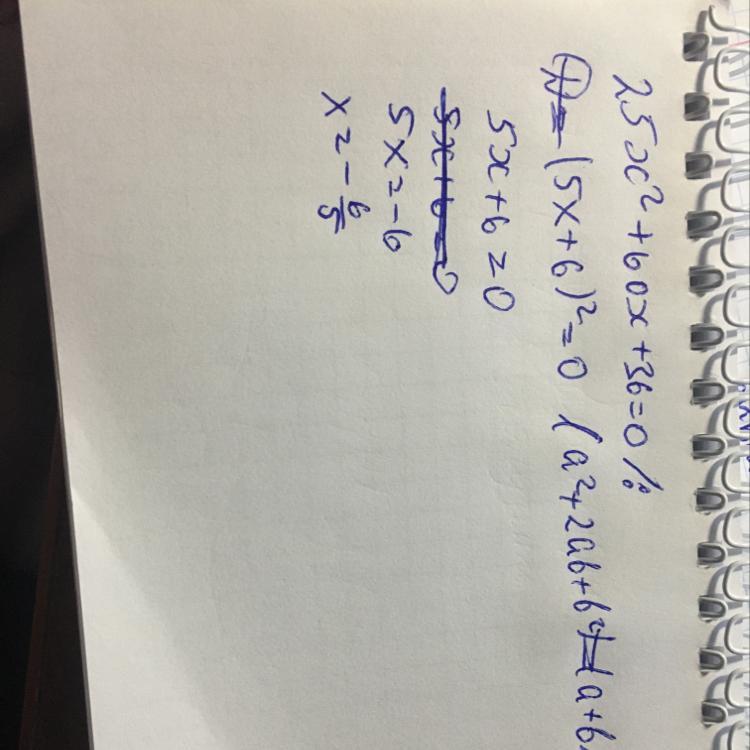 25x² + 60x + 36 = 0 /:
(5x + 6)² = 0 (a² + 2ab + b² = (a + b
5x + 6 = 0
5x + 6 = 0
5x = -6
x = -6/5